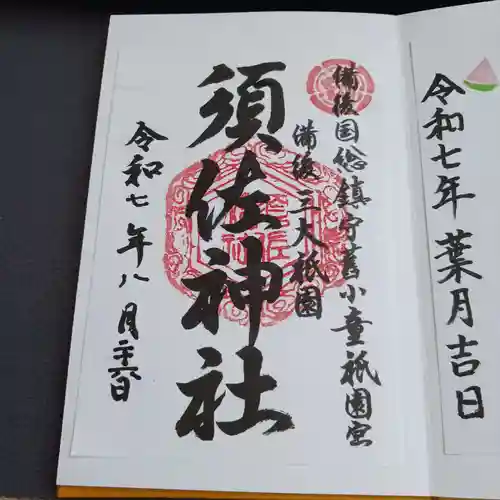 令和七年葉月吉日
備後国総鎮守旧小童祇園宮
備後三大祇園
須佐神社
令和七年八月二十六日